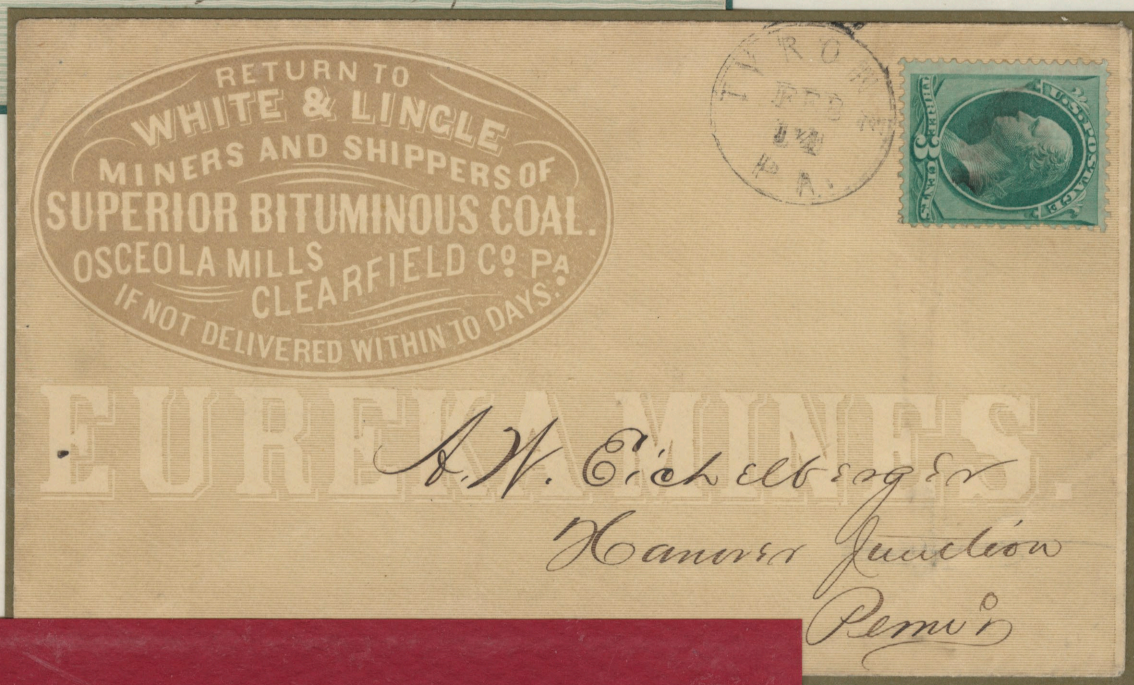 RETURN TO
WHITE & LINGLE
MINERS AND SHIPPERS OF
SUPERIOR BITUMINOUS COAL.
OSCEOLA MILLS
CLEARFIELD Co. PA.
IF NOT DELIVERED WITHIN 10 DAYS.
TYRONE
FEB
14
PA.
U.S. POSTAGE
THREE 3 CENTS
EUREKA MINES.
A. W. Eichelberger
Hanover Junction
Penn'a